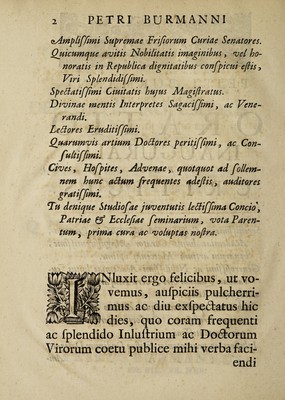 2 PETRI BURMANNI
Ampliſſimi Supremae Friſiorum Curiae Senatores.
Quicumque avitis Nobilitatis imaginibus, vel ho-
noratis in Republica dignitatibus conſpicui eſtis,
Viri Splendidiſſimi.
Spectatiſſimi Civitatis hujus Magiſtratus.
Divinae mentis Interpretes Sagaciſſimi, ac Vene-
randi.
Lectores Eruditiſſimi.
Quarumvis artium Doctores peritiſſimi, ac Con-
ſultiſſimi.
Cives, Hoſpites, Advenae, quotquot ad ſollem-
nem hunc actum frequentes adeſtis, auditores
gratiſſimi.
Tu denique Studioſae juventutis lectiſſima Concio,
Patriae & Eccleſiae ſeminarium, vota Paren-
tum, prima cura ac voluptas noſtra.
INluxit ergo felicibus, ut vo-
vemus, auſpiciis pulcherri-
mus ac diu exſpectatus hic
dies, quo coram frequenti
ac ſplendido Inluſtrium ac Doctorum
Virorum coetu publice mihi verba faci-
endi